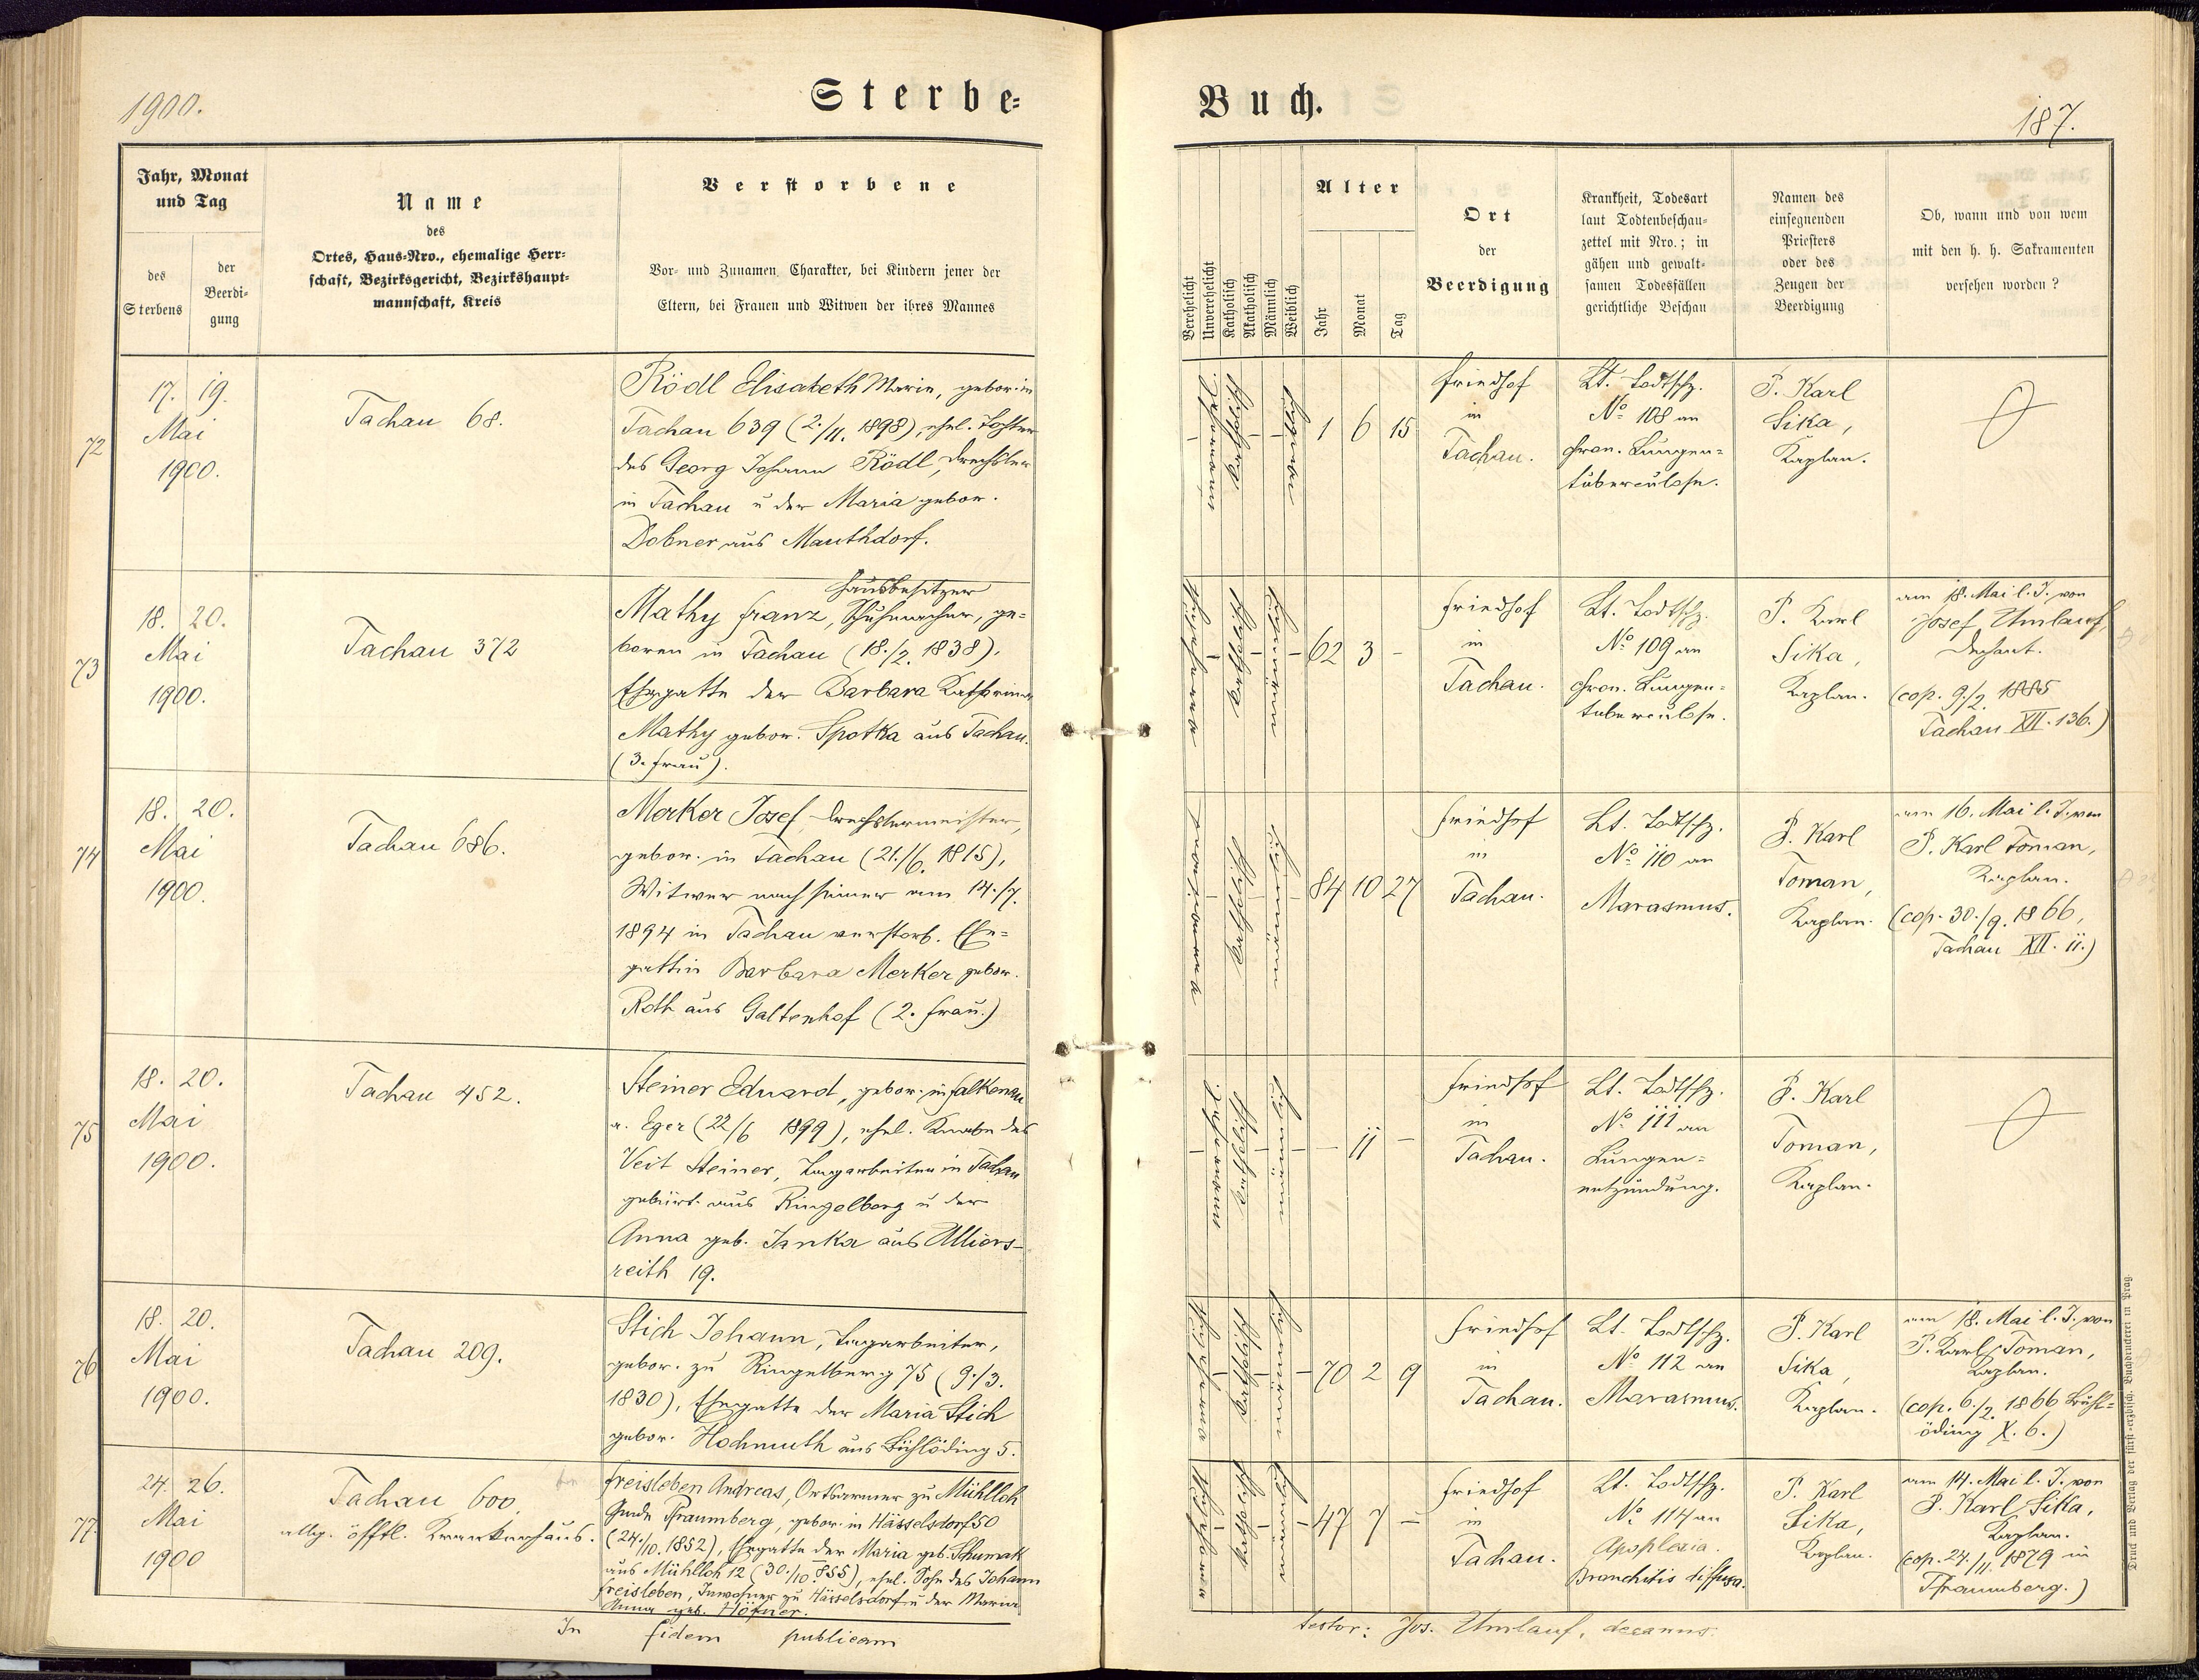 1900.
Sterbe-
Jahr, Monat
und Tag
des
Sterbens
der
Beerdi-
gung
Name
des
Ortes, Haus-Nro., ehemalige Herr-
schaft, Bezirksgericht, Bezirkshaupt-
mannschaft, Kreis
Verstorbene
Vor- und Zunamen, Charakter, bei Kindern jener der
Eltern, bei Frauen und Witwen der ihres Mannes
72
17. 19.
Mai
1900.
Tachau 68.
Rödl Elisabeth Marie, gebor. in
Tachau 639 (2./11. 1898), ehel. Tochter
des Georg Johann Rödl, Drechsler
in Tachau u der Maria gebor.
Dobner aus Mauthdorf.
73
18. 20.
Mai
1900.
Tachau 372
Hausbesitzer
Mathy Franz, Schuhmacher, ge-
boren in Tachau (18./2. 1838),
Ehegatte der Barbara Katharina
Mathy gebor. Spotka aus Tachau.
(3. Frau).
74
18. 20.
Mai
1900.
Tachau 686.
Merker Josef, Drechslermeister,
gebor. in Tachau (21./6. 1815),
Witwer nach seiner am 14./7.
1894 in Tachau verstorb. Ehe-
gattin Barbara Merker gebor.
Roth aus Galtenhof (2. Frau.)
75
18. 20.
Mai
1900.
Tachau 452.
Steiner Eduard, gebor. in Falkenau
a. Eger (22/6 1899), ehel. Knabe des
Veit Steiner, Tagarbeiter in Tachau
gebürt. aus Ringelberg u der
Anna geb. Janka aus Ulliers-
reith 19.
76
18. 20.
Mai
1900.
Tachau 209.
Stich Johann, Tagarbeiter,
gebor. zu Ringelberg 75 (9./3.
1830), Ehegatte der Maria Stich
gebor. Hochmuth aus Bühlöding 5.
77
24. 26.
Mai
1900
Tachau 600.
allg. öfftl. Krankenhaus.
Freisleben Andreas, Ortsarmer zu Mühlloh
Gmde Pfraumberg, gebor. in Hässelsdorf 50
(24./10. 1852), Ehegatte der Maria geb. Schumak
aus Mühlloh 12 (30./10. 855), ehel. Sohn des Johann
Freisleben, Inwohner zu Hässelsdorf u der Maria
Anna geb. Höfner.
In fidem publicam
Buch.
187.
Verehelicht
Unverehelicht
Katholisch
Akatholisch
Männlich
Weiblich
Alter
Jahr
Monat
Tag
Ort
der
Beerdigung
Krankheit, Todesart
laut Todtenbeschau-
zettel mit Nro.; in
gähen und gewalt-
samen Todesfällen
gerichtliche Beschau
Namen des
einsegnenden
Priesters
oder des
Zeugen der
Beerdigung
Ob, wann und von wem
mit den h. h. Sakramenten
versehen worden?
katholisch
1 6 15
Friedhof
in
Tachau.
Lt. Todtschz.
No 108 an
chron. Lungen-
tuberculose.
P. Karl
Sika,
Kaplan.
katholisch
62 3 -
Friedhof
in
Tachau.
Lt. Todtschz.
No 109 an
chron. Lungen-
tuberculose.
P. Karl
Sika,
Kaplan.
am 18. Mai l. J. von
Josef Umlauf,
Dechant.
(cop. 9./2. 1885
Tachau XII. 136.)
katholisch
84 10 27
Friedhof
in
Tachau.
Lt. Todtschz.
No 110 an
Marasmus.
P. Karl
Toman,
Kaplan.
am 16. Mai l. J. von
P. Karl Toman,
Kaplan.
(cop. 30./9. 1866,
Tachau XII. 11.)
katholisch
- 11 -
Friedhof
in
Tachau.
Lt. Todtschz.
No 111 an
Lungen-
entzündung.
P. Karl
Toman,
Kaplan.
katholisch
70 2 9
Friedhof
in
Tachau.
Lt. Todtschz.
No 112 an
Marasmus.
P. Karl
Sika,
Kaplan.
am 18. Mai l. J. von
P. Karl Toman,
Kaplan.
(cop. 6./2. 1866 Bühl-
öding X. 6.)
katholisch
47 7 -
Friedhof
in
Tachau.
Lt. Todtschz.
No 114 an
Apoplexia.
Bronchitis diffusa.
P. Karl
Sika,
Kaplan.
am 14. Mai l. J. von
P. Karl Sika,
Kaplan.
(cop. 24./11. 1879 in
Pfraumberg.)
testor: Jos. Umlauf, decanus.
Druck und Verlag der fürst-erzbisch. Buchdruckerei in Prag.